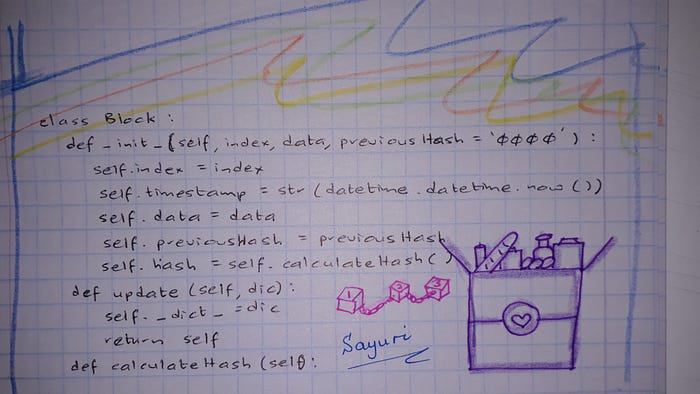 class Block :
def _init_(self, index, data, previousHash = '0000') :
self.index = index
self.timestamp = str (datetime.datetime.now())
self.data = data
self.previousHash = previousHash
self.hash = self.calculateHash()
def update (self, dic) :
self._dict_ = dic
return self
def calculateHash (self) :
1 2 3
Sayuri